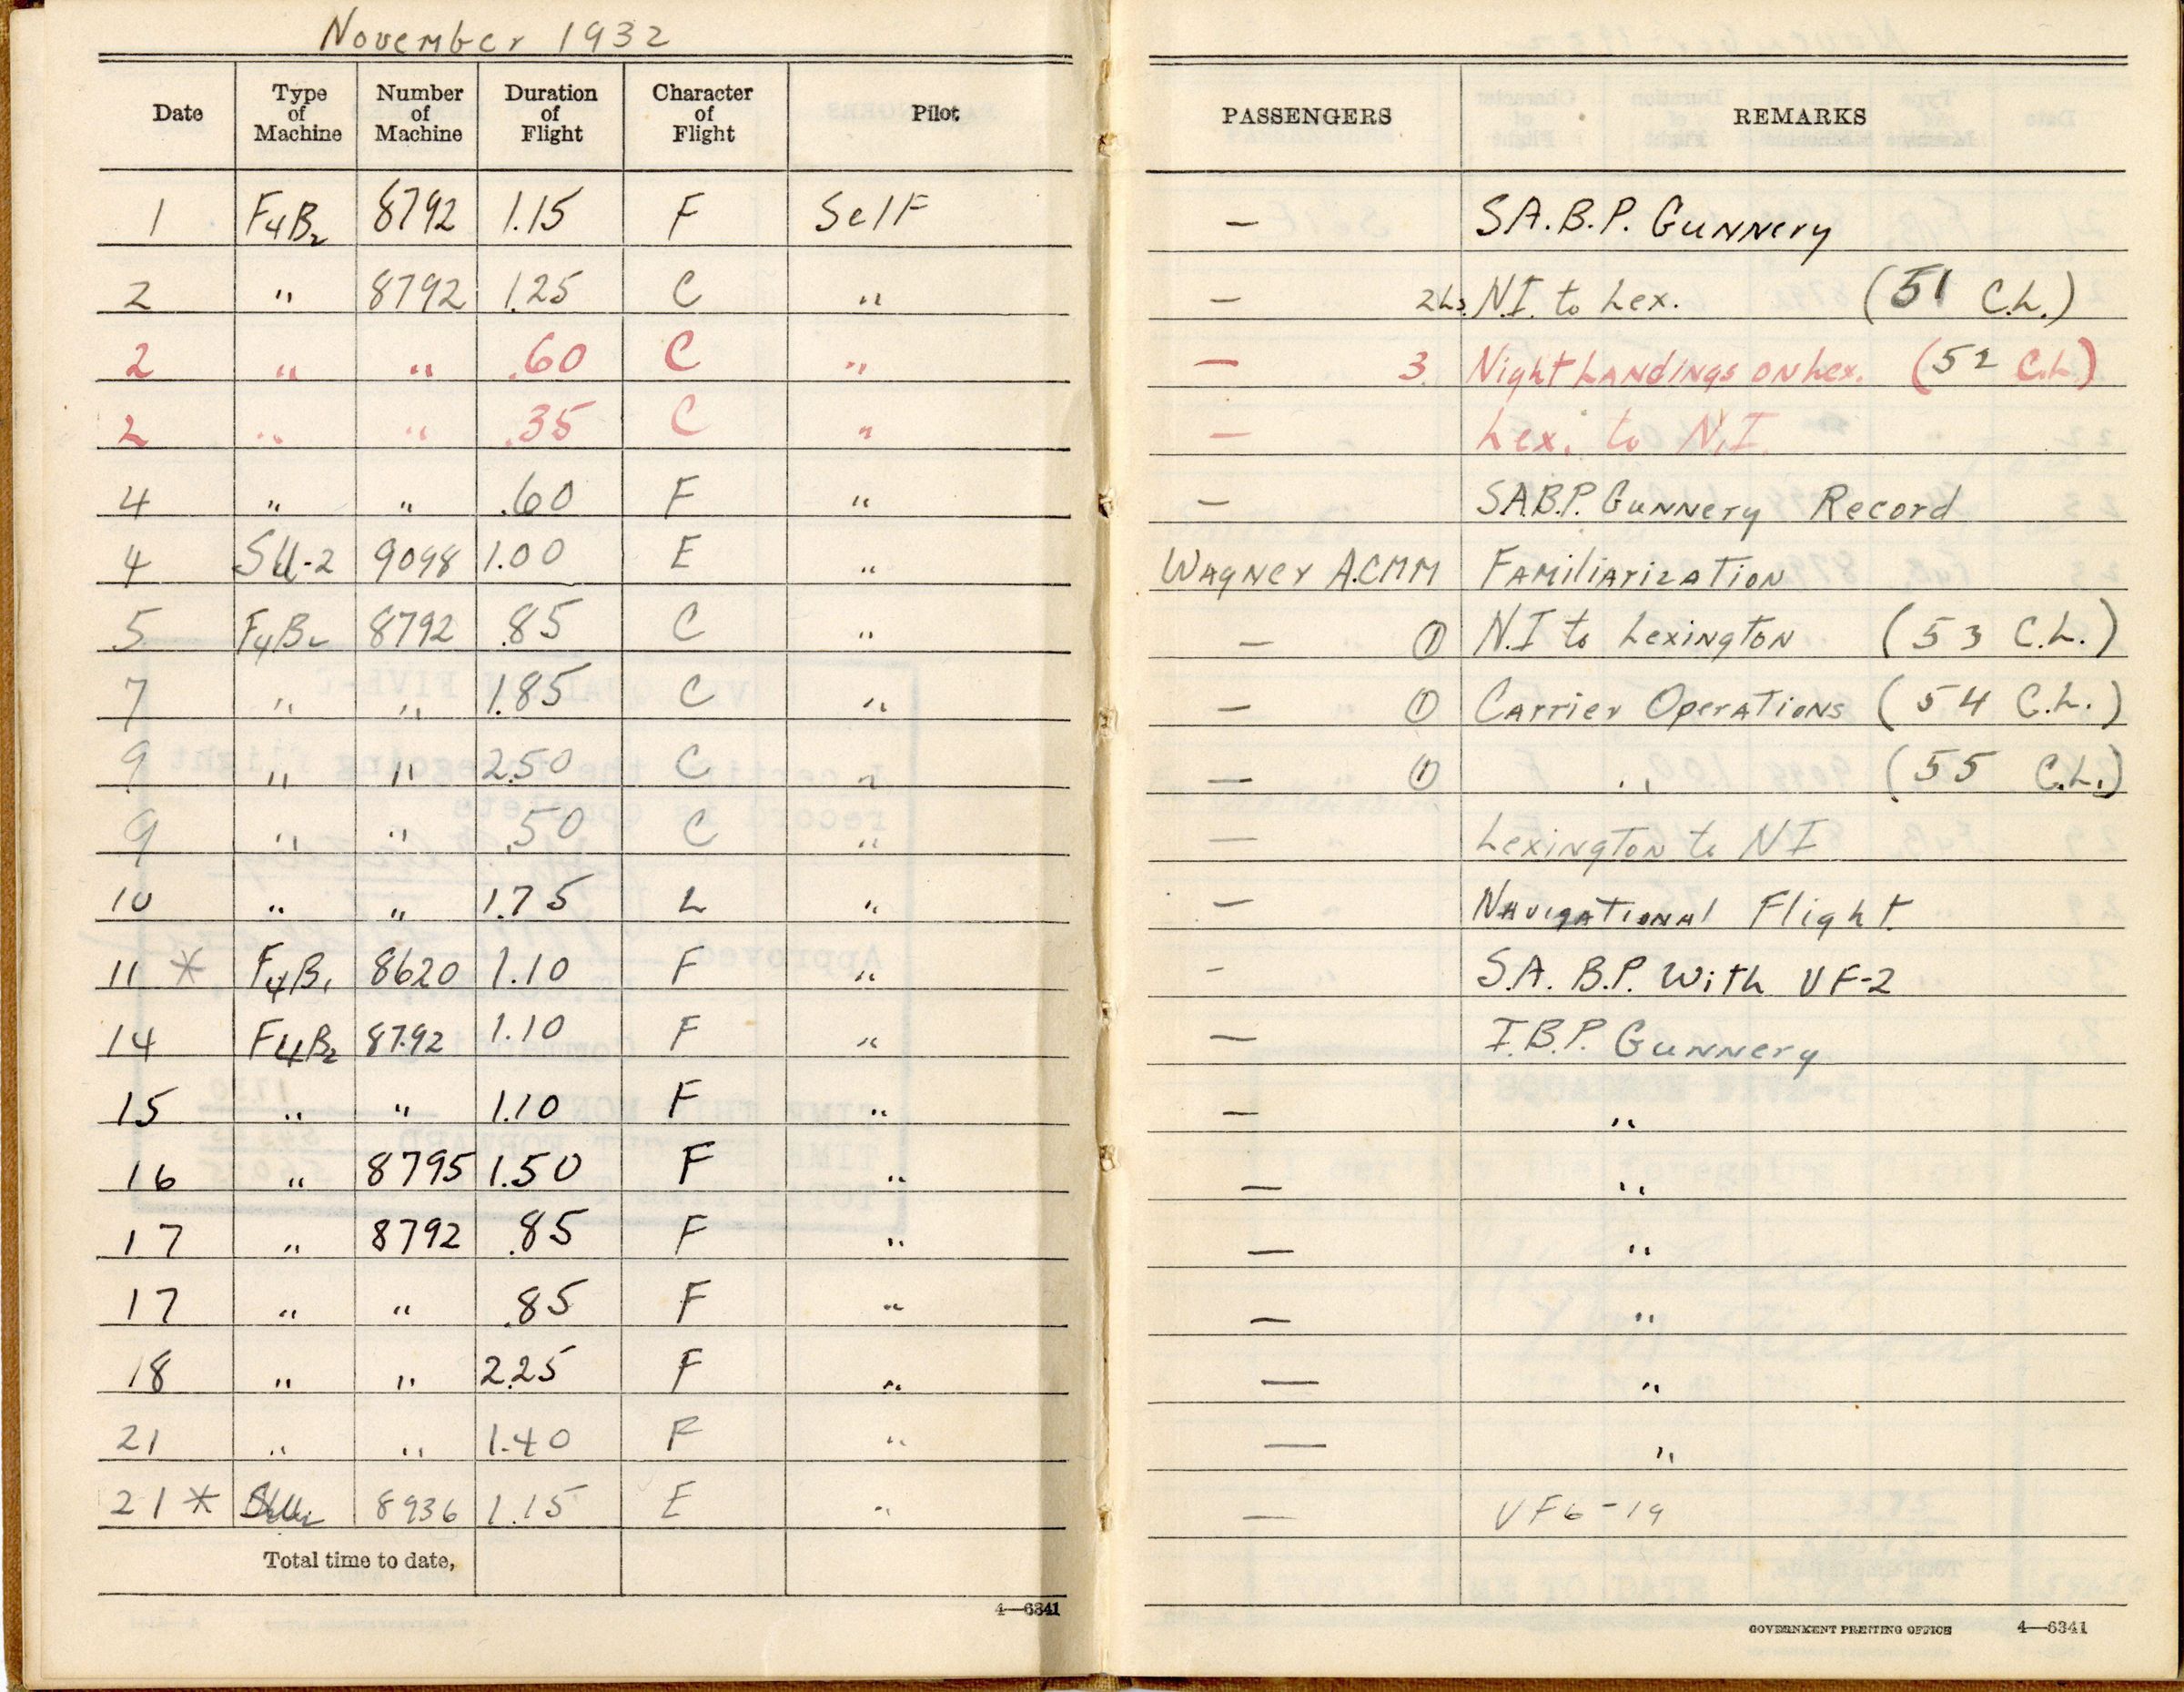 November 1932
Date Type of Machine Number of Machine Duration of Flight Character of Flight Pilot PASSENGERS REMARKS
1 F4B2 8792 1.15 F Self — S.A.B.P. Gunnery
2 " 8792 1.25 C " — 2 Ls. N.I. to Lex. (51 C.L.)
2 " " .60 C " — 3 Night Landings on Lex. (52 C.L.)
2 " " .35 C " — Lex. to N.I.
4 " " .60 F " — S.A.B.P. Gunnery Record
4 SU-2 9098 1.00 E " Wagner A.CMM Familiarization
5 F4B2 8792 .85 C " — ① N.I to Lexington (53 C.L.)
7 " " 1.85 C " — ① Carrier Operations (54 C.L.)
9 " " 2.50 C " — ① " (55 C.L.)
9 " " .50 C " — Lexington to NI
10 " " 1.75 L " — Navigational Flight.
11 * F4B1 8620 1.10 F " — S.A. B.P. With VF-2
14 F4B2 8792 1.10 F " — I.B.P. Gunnery
15 " " 1.10 F " — "
16 " 8795 1.50 F " — "
17 " 8792 .85 F " — "
17 " " .85 F " — "
18 " " 2.25 F " — "
21 " " 1.40 F " — "
21 * 8936 1.15 E " — VF6-19
Total time to date,
4—6341
GOVERNMENT PRINTING OFFICE 4—6341